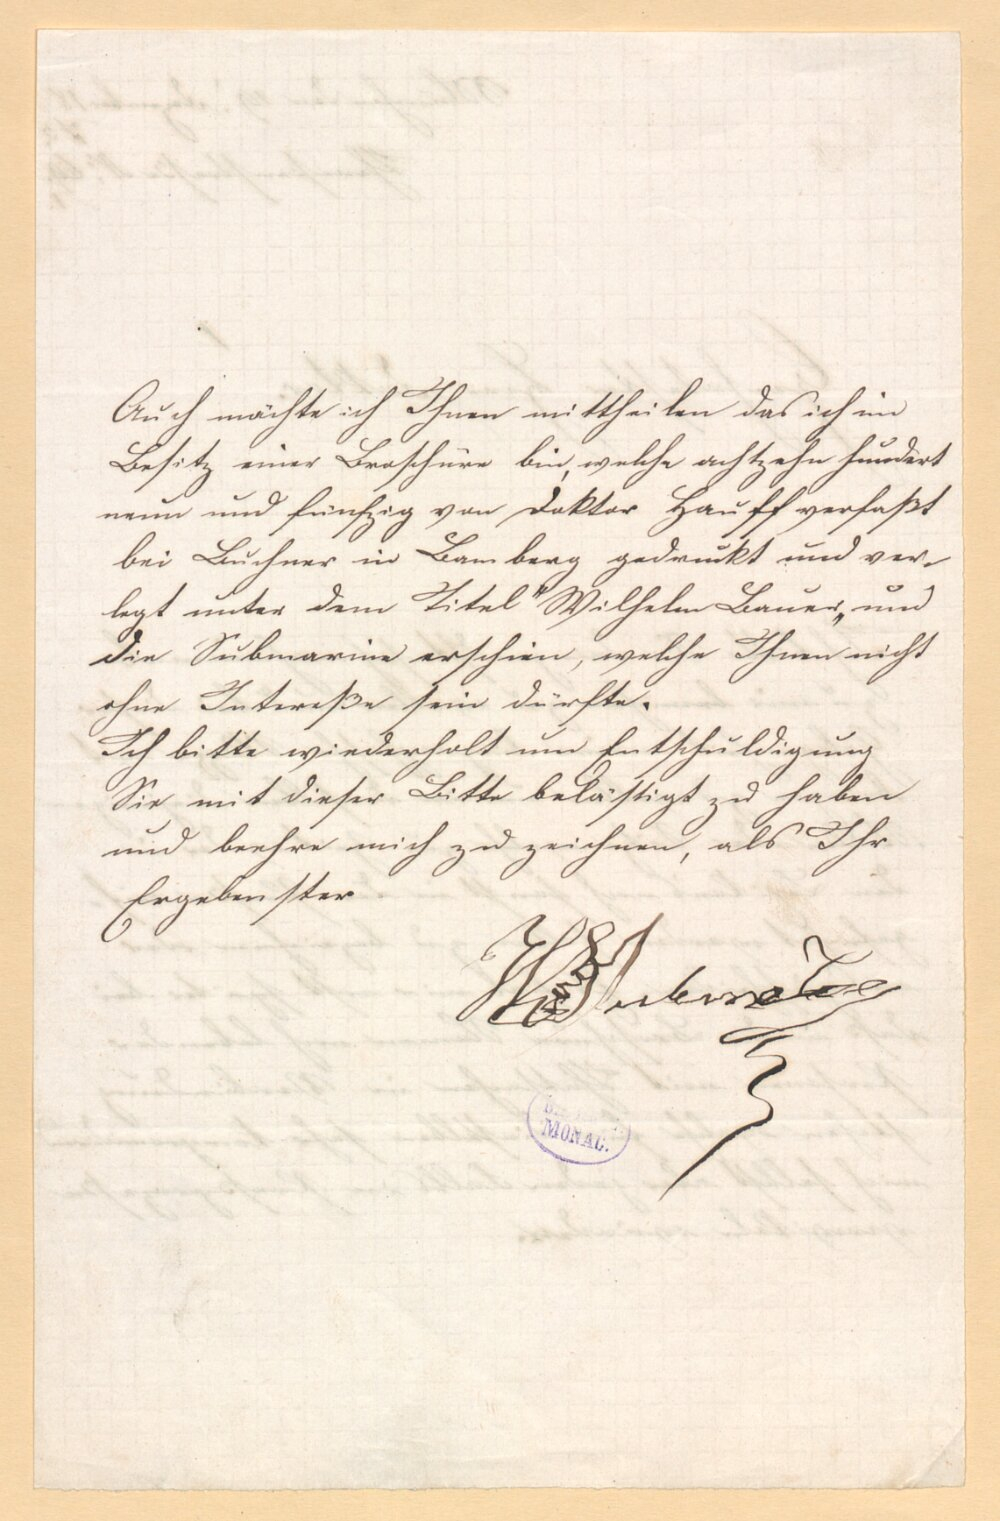 Auch möchte ich Ihnen mittheilen das ich im
Besitz einer Broschüre bin, welche achtzehn hundert
neun und fünfzig von Doktor Hauff verfaßt
bei Buchner in Bamberg gedruckt und ver-
legt unter dem Titel "Wilhelm Bauer" und
die Submarine erschien, welche Ihnen nicht
ohne Intereße sein dürfte.
Ich bitte wiederholt um Entschuldigung
Sie mit dieser Bitte belästigt zu haben
und beehre mich zu zeichnen, als Ihr
Ergebenster
MONAC.